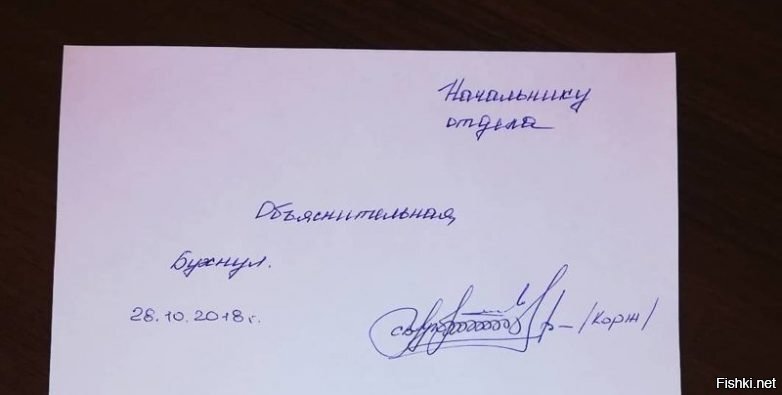 Начальнику
отдела
Объяснительная
Бухнул.
28.10.2018г.
/Корж/
Fishki.net